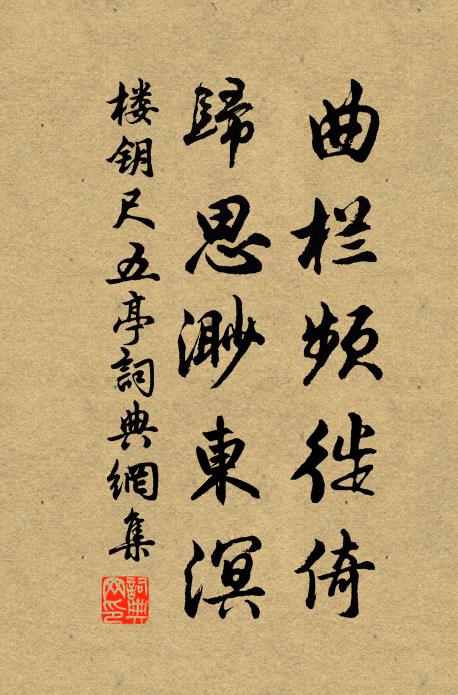 曲栏频徙倚
歸思渺東溟
楼钥尺五亭詞典網集
詞典網印